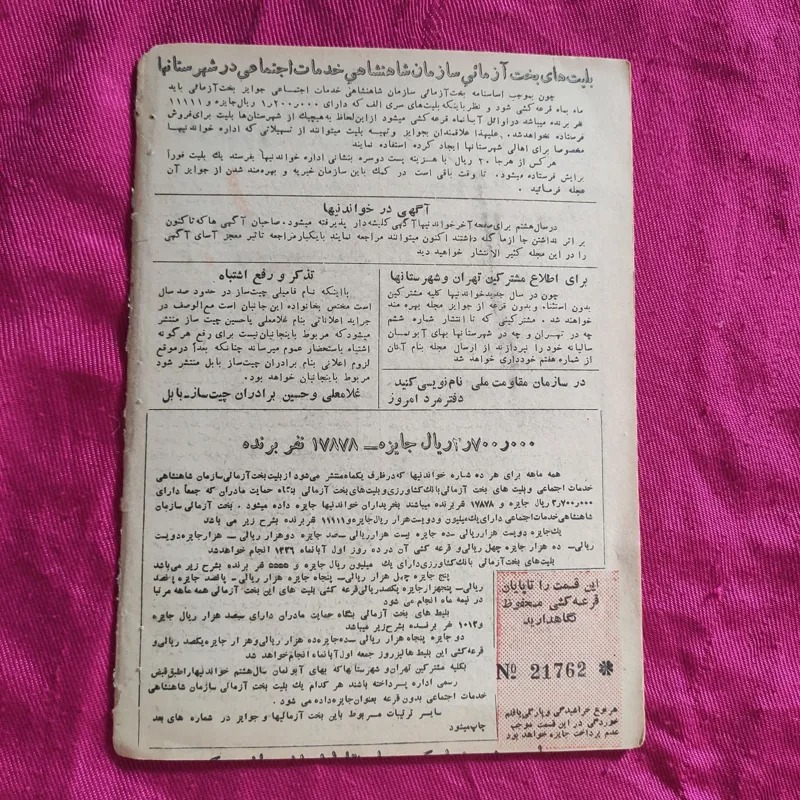 بلیت‌های بخت آزمائی سازمان شاهنشاهی خدمات اجتماعی در شهرستانها
چون بموجب اساسنامه بخت‌آزمائی سازمان شاهنشاهی خدمات اجتماعی جوایز بخت‌آزمائی باید
ماه بماه قرعه کشی شود و نظر باینکه بلیت‌های سری الف که دارای ۱٫۲۰۰٫۰۰۰ ریال جایزه و ۱۱۱۱۱
نفر برنده میباشد در اوائل آبانماه قرعه کشی میشود ازاین لحاظ به هیچیک از شهرستان‌ها بلیت برای فروش
فرستاده نخواهد شد. علیهذا علاقمندان بجوایز و تهیه بلیت میتوانند از تسهیلاتی که اداره خواندنیها
مخصوصا برای اهالی شهرستانها ایجاد کرده استفاده نمایند
هر کس از هر جا ۲۰ ریال با هزینه پست دوسره بنشانی اداره خواندنیها بفرستد یك بلیت فوراً
برایش فرستاده میشود. تا وقت باقی است در کمك باین سازمان خیریه و بهره‌مند شدن از جوایز آن
عجله فرمائید .
آگهی در خواندنیها
در سال هشتم برای صفحه آخر خواندنیها آگهی کلیشه‌دار پذیرفته میشود. صاحبان آگهی ها که تا کنون
بر اثر نداشتن جا از ما گله داشتند اکنون میتوانند مراجعه نمایند با یکبار مراجعه تاثیر معجز آسای آگهی
را در این مجله کثیر الانتشار خواهید دید
برای اطلاع مشترکین تهران و شهرستانها
چون در سال جدید خواندنیها کلیه مشترکین
بدون استثناء و بدون قرعه از جوایز بهره مند
خواهند شد. مشترکینی که تا انتشار شماره ششم
چه در تهران و چه در شهرستانها بهای آبونمان
سالیانه خود را نپردازند از ارسال مجله بنام آنان
از شماره هفتم خودداری خواهد شد
در سازمان مقاومت ملی نام نویسی کنید.
دفتر مرد امروز
تذکر و رفع اشتباه
با اینکه نام فامیلی چیت‌ساز در حدود صد سال
است مختص بخانواده این جانبان است مع‌الوصف در
جراید اعلاناتی بنام غلامعلی یا حسین چیت ساز منتشر
میشود که مربوط باینجانبان نیست برای رفع هر گونه
اشتباه باستحضار عموم میرساند چنانکه بعداً در موقع
لزوم اعلانی بنام برادران چیت‌ساز بابل منتشر شود
مربوط باینجانبان خواهد بود.
غلامعلی و حسین برادران چیت‌ساز ـ بابل
۲٫۷۰۰٫۰۰۰ ریال جایزه ـ ۱۷۸۷۸ نفر برنده
همه ماهه برای هر ده شماره خواندنیها که در ظرف یکماه منتشر می‌شود از بلیت بخت آزمائی سازمان شاهنشاهی
خدمات اجتماعی و بلیت های بخت آزمائی بانك کشاورزی و بلیت‌های بخت آزمائی بنگاه حمایت مادران که جمعاً دارای
۲٫۷۰۰٫۰۰۰ ریال جایزه و ۱۷۸۷۸ نفر برنده میباشند بخریداران خواندنیها جایزه داده میشود . بخت آزمائی سازمان
شاهنشاهی خدمات اجتماعی دارای یك میلیون و دویست هزار ریال جایزه و ۱۱۱۱۱ نفر برنده بشرح زیر می باشد
یك جایزه دویست هزار ریالی ـ ده جایزه بیست هزار ریالی ـ صد جایزه دو هزار ریالی ـ هزار جایزه دویست
ریالی ـ ده هزار جایزه چهل ریالی و قرعه کشی آن در ده روز اول آبانماه ۱۳۲۶ انجام خواهد شد
بلیت‌های بخت آزمائی بانك کشاورزی دارای یك میلیون ریال جایزه و ۵۵۵۵ نفر برنده بشرح زیر می‌باشد
پنج جایزه چهل هزار ریالی ـ پنجاه جایزه هزار ریالی ـ پانصد جایزه پانصد
ریالی ـ پنجهزار جایزه یکصد ریالی قرعه کشی بلیت های این بخت آزمائی همه ماهه مرتبا
در نیمه ماه انجام می شود
بلیط های بخت آزمائی بنگاه حمایت مادران دارای سیصد هزار ریال جایزه
و ۱۰۱۲ نفر برنده بشرح زیر میباشد
دو جایزه پنجاه هزار ریالی ـ ده جایزه ده هزار ریالی و هزار جایزه یکصد ریالی و
قرعه کشی این بلیط ها نیز روز جمعه اول آبانماه انجام خواهد شد
بکلیه مشترکین تهران و شهرستانها که بهای آبونمان سال هشتم خواندنیها را طبق قبض
رسمی اداره پرداخته باشند هر کدام یك بلیت بخت آزمائی سازمان شاهنشاهی
خدمات اجتماعی بدون قرعه بعنوان جایزه داده می شود .
سایر ترتیبات مربوط باین بخت آزمائیها و جوایز در شماره های بعد
چاپ میشود
این قسمت را تا پایان
قرعه کشی محفوظ
نگاهدارید
Nº 21762 ✻
هر نوع خراشیدگی و پارگی یا قلم
خوردگی در این قسمت موجب
عدم پرداخت جایزه خواهد بود